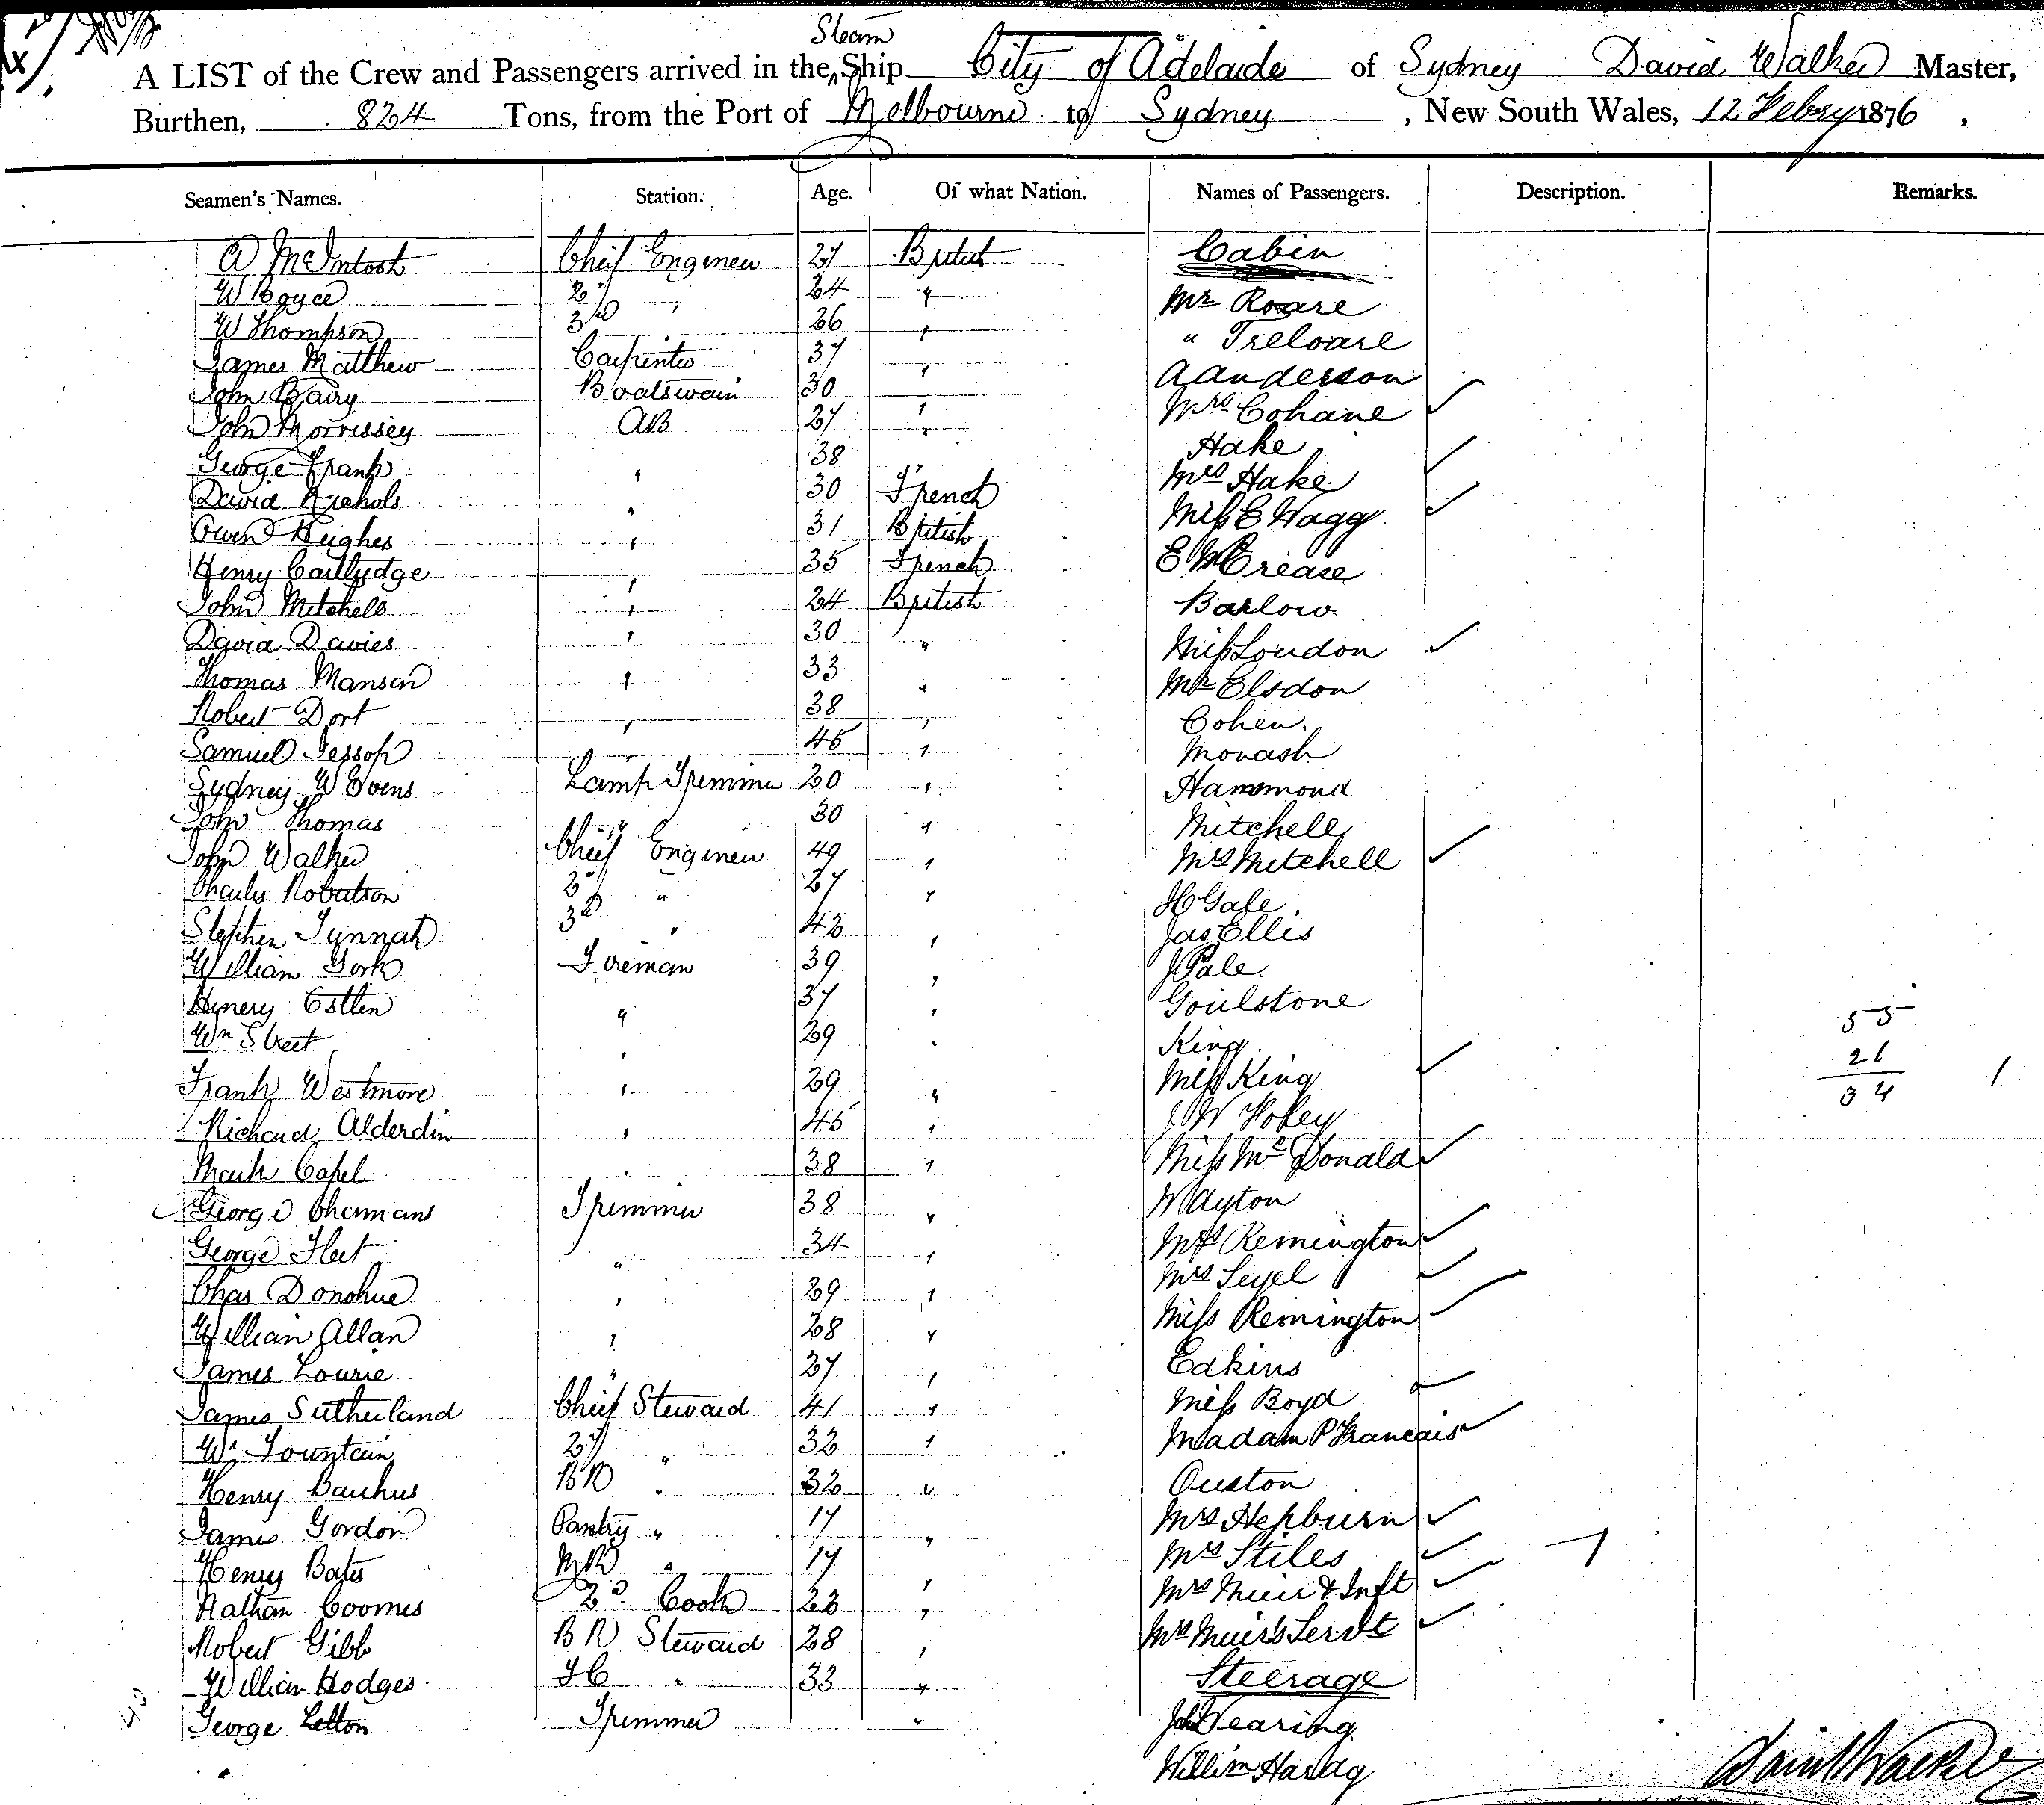 Steam
A LIST of the Crew and Passengers arrived in the Ship City of Adelaide of Sydney David Walker Master,
Burthen, 824 Tons, from the Port of Melbourne to Sydney, New South Wales, 12 Febry 1876,
Seamen's Names. Station. Age. Of what Nation. Names of Passengers. Description. Remarks.
McIntosh Chief Engineer 27 British Cabin
W Boyce 2d " 24 " Mr Roare
W Thompson 3rd " 26 " " Treloare
James Matthew Carpenter 37 " A Anderson
John Bairy Boatswain 30 " Mrs Cohane ✓
John Morrissey AB 27 " Hake
George Frank " 38 Mrs Hake ✓
David Nichols " 30 French Miss E Wagg ✓
Owen Hughes " 31 British E McCrease
Henry Cartlydge " 35 French Barlow
John Mitchell " 24 British Miss Loudon ✓
David Davies " 30 " Mr Elsdon
Thomas Manson " 33 " Cohen
Robert Dort " 38 " Monash
Samuel Jessop " 45 " Hammond
Sydney W Evens Lamp Trimmer 20 " Mitchell
John Thomas " 30 " Mrs Mitchell ✓
John Walker Chief Engineer 49 " H Gale
Charles Robertson 2d " 27 " Jas Ellis
Stephen Tunnah 3d " 42 " J Pale
William York Fireman 39 " Goulstone
Henery Estlen " 37 " King
Wm Street " 29 " Miss King ✓
Frank Westmore " 29 " J W
Richard Alderdin " 45 " Miss McDonald ✓
Mark Capel " 38 " W Ayton
George Chamans Trimmer 38 " Mrs Remington ✓
George Fleet " 34 " Mrs Seyel ✓
Chas Donohue " 29 " Miss Remington ✓
William Allan " 28 " Edkins
James Lourie " 27 " Miss Boyd ✓
James Sutherland Chief Steward 41 " Madam P Francais ✓
Wm Fountain 2d " 32 " Ouston
Henry " 32 " Mrs Hepburn ✓
James Gordon Pantry " 17 " Mrs Stiles ✓
Henry Bates " 17 " Mrs Muir & Inft ✓
Nathan Coomes 2d Cook 22 " Mrs Muirs Servt ✓
Robert Gibb BR Steward 28 " Steerage
William Hodges FC " 33 " John Dearing
George Letton Trimmer " William Hardy
55
21
34
David Walker